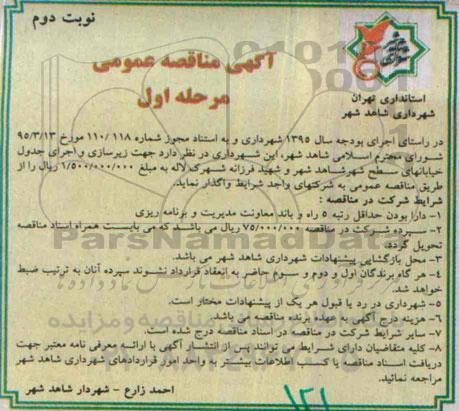 نوبت دوم
آگهی مناقصه عمومی
مرحله اول
استانداری تهران
شهرداری شاهد شهر
در راستای اجرای بودجه سال ۱۳۹۵ شهرداری و به استناد مجوز شماره ۱۱۸ /۱۱۰ مورخ ۹۵/۳/۱۳
شورای محترم اسلامی شاهد شهر، این شهرداری در نظر دارد جهت زیرسازی و اجرای جدول
خیابانهای سطح شهر شاهد شهر و شهید فرزانه شهرک لاله به مبلغ ۱/۵۰۰/۰۰۰/۰۰۰ ریال را از
طریق مناقصه عمومی به شرکتهای واجد شرایط واگذار نماید.
شرایط شرکت در مناقصه :
۱- دارا بودن حداقل رتبه ۵ راه و باند معاونت مدیریت و برنامه ریزی
۲- سپرده شرکت در مناقصه ۷۵/۰۰۰/۰۰۰ ریال می باشد که می بایست همراه اسناد مناقصه
تحویل گردد.
۳- محل بازگشایی پیشنهادات شهرداری شاهد شهر می باشد.
۴- هر گاه برندگان اول و دوم و سوم حاضر به انعقاد قرارداد نشوند سپرده آنان به ترتیب ضبط
خواهد شد.
۵- شهرداری در رد یا قبول هر یک از پیشنهادات مختار است.
۶- هزینه درج آگهی به عهده برنده مناقصه می باشد.
۷- سایر شرایط شرکت در مناقصه در اسناد مناقصه درج شده است.
۸- کلیه متقاضیان دارای شرایط می توانند پس از انتشار آگهی با ارائه معرفی نامه معتبر جهت
دریافت اسناد مناقصه یا کسب اطلاعات بیشتر به واحد امور قراردادهای شهرداری شاهد شهر
مراجعه نمائید.
احمد زارع - شهردار شاهد شهر
ParsNamadData